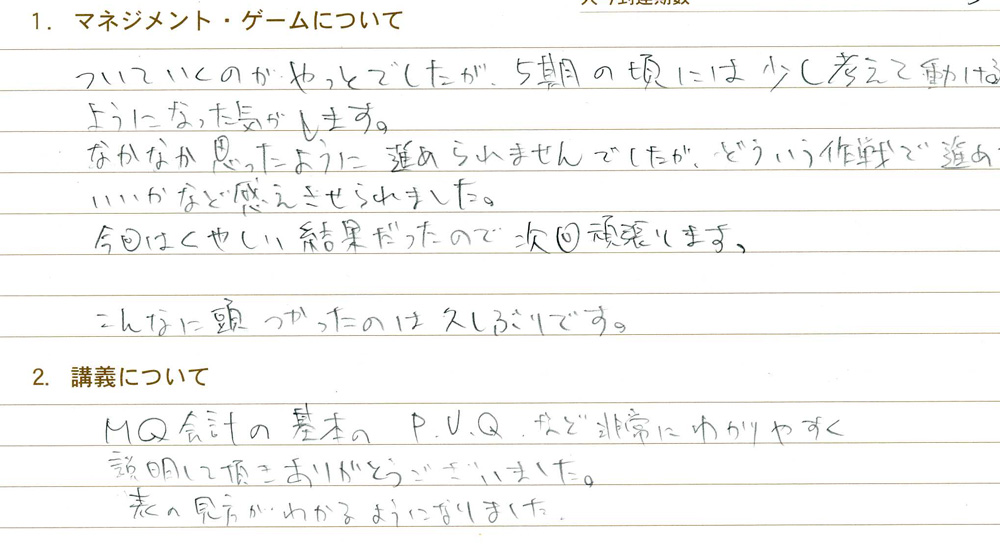 1. マネジメント・ゲームについて
ついていくのがやっとでしたが、5期の頃には少し考えて動ける
ようになった気がします。
なかなか思ったように進められませんでしたが、どういう作戦で進め
いいかなど感えさせられました。
今回はくやしい結果だったので次回頑張ります。
こんなに頭つかったのは久しぶりです。
2. 講義について
MQ会計の基本の P.V.Q.など非常にわかりやすく
説明して頂きありがとうございました。
表の見方がわかるようになりました.